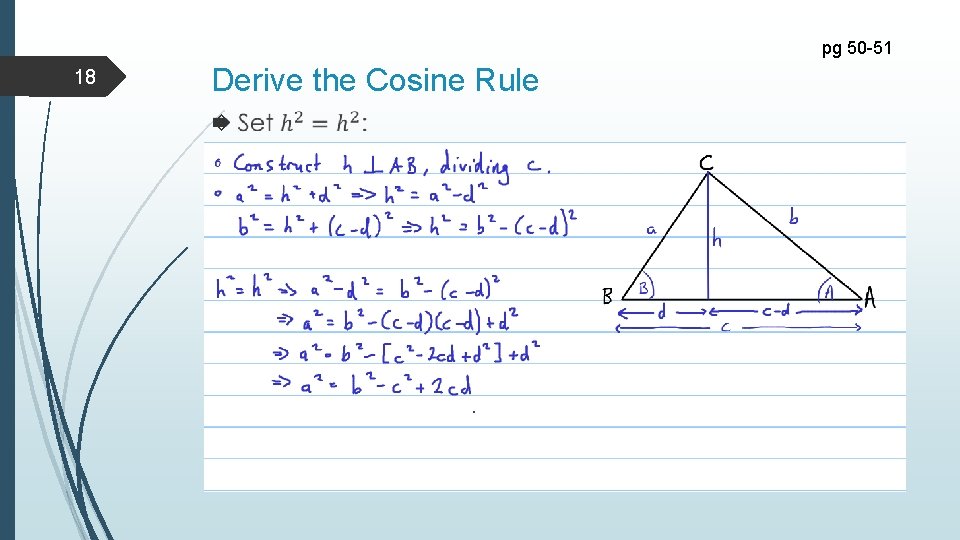 pg 50-51
18
Derive the Cosine Rule
Set h² = h²:
Construct h ⊥ AB, dividing c.
a² = h² + d² => h² = a² - d²
b² = h² + (c-d)² => h² = b² - (c-d)²
h² = h² => a² - d² = b² - (c-d)²
=> a² = b² - (c-d)(c-d) + d²
=> a² = b² - [c² - 2cd + d²] + d²
=> a² = b² - c² + 2cd
C
a
h
b
B
B
A
A
d
c-d
c